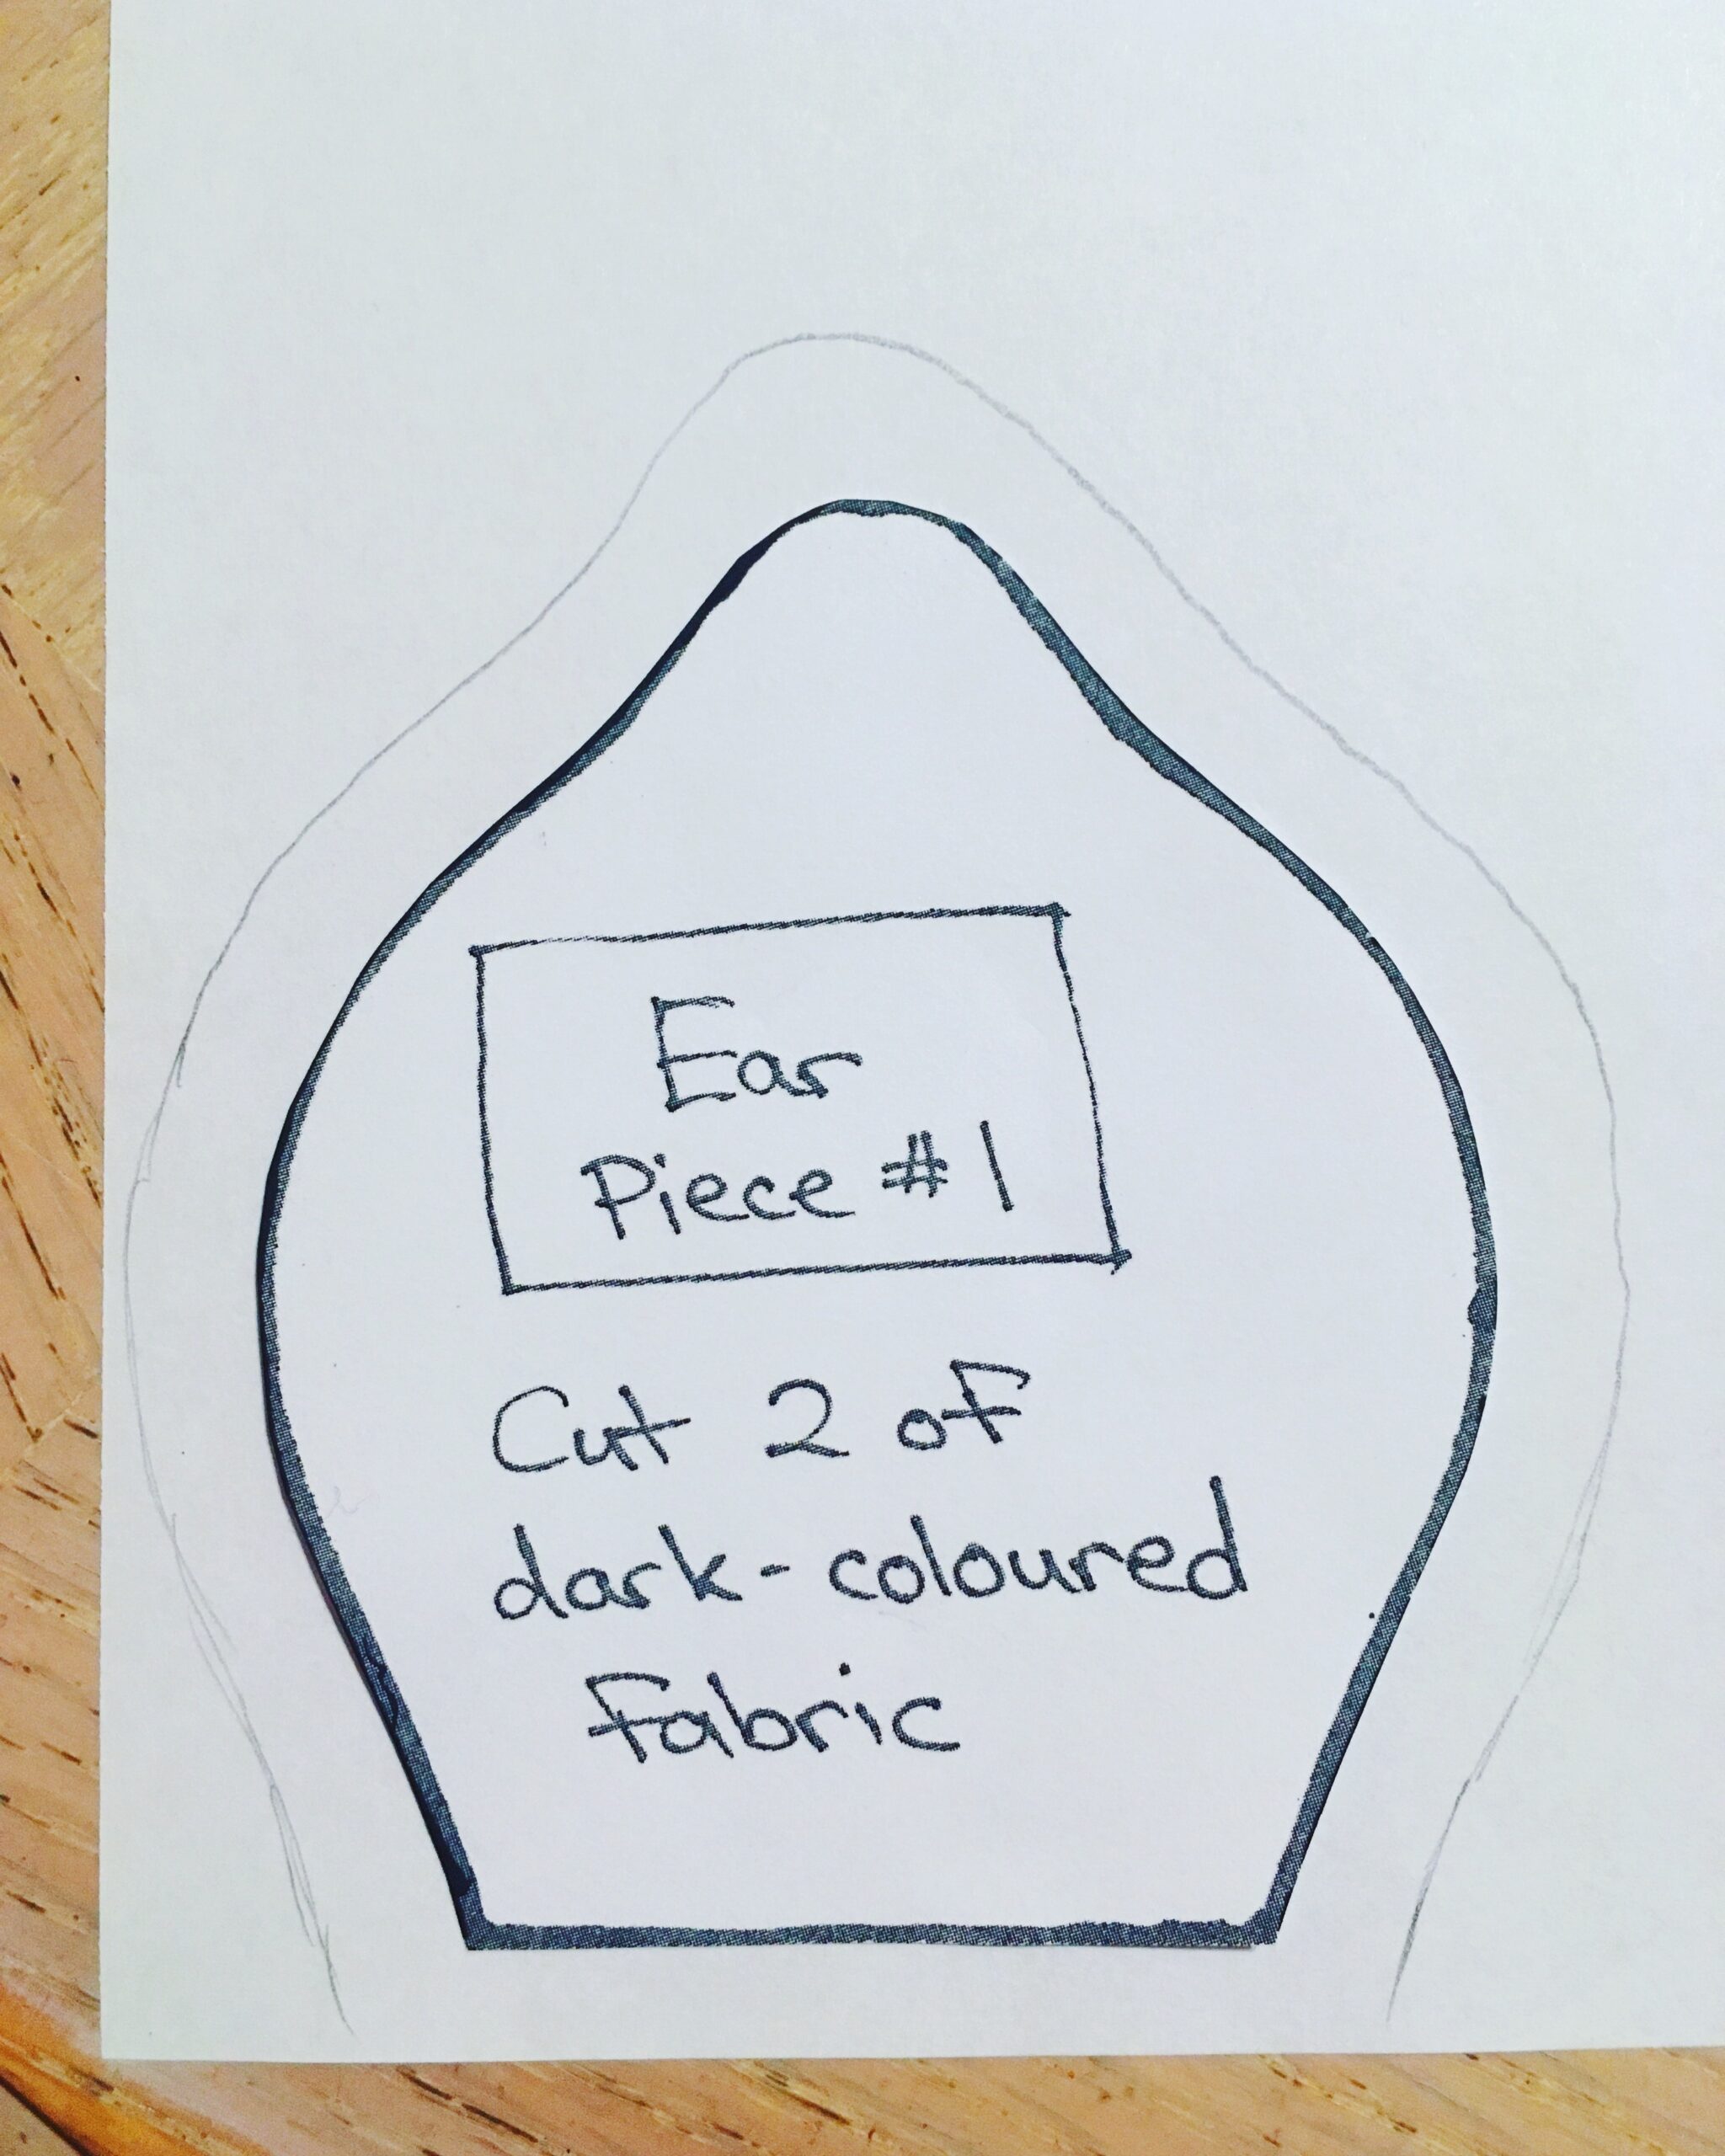 Ear
Piece #1
Cut 2 of
dark-coloured
Fabric